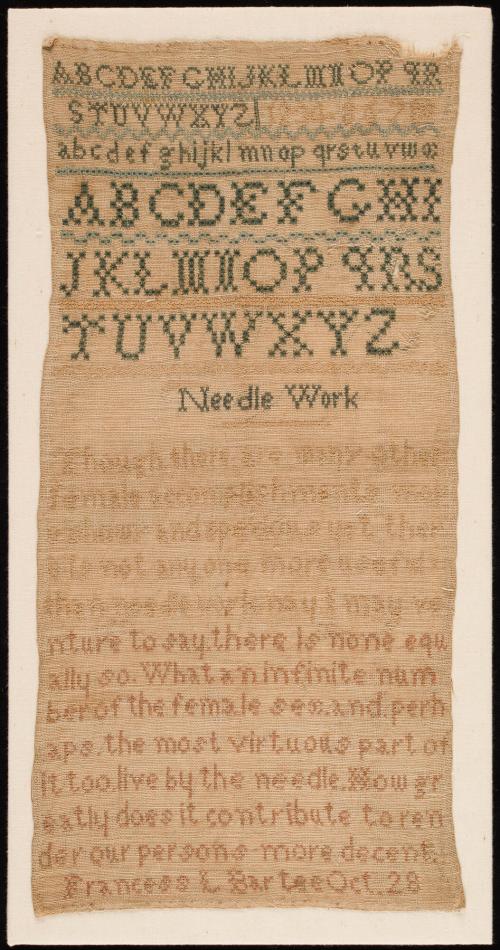 ABCDEFGHIJKLMNOPQR
STUVWXYZ
abcdefghijklmnopqrstuvw
ABCDEFGHI
JKLMNOPQRS
TUVWXYZ
Needle Work
Though there are many other
female accomplishments more
and specious yet ther
e is not any one more useful
than needlework nay I may ve
nture to say. there Is none equ
ally so. What an infinite num
ber of the female sex. and. perh
aps. the most virtuous part of
it too. live by the needle. How gr
eatly does it contribute to ren
der our persons more decent.
Frances L Bartee Oct. 28